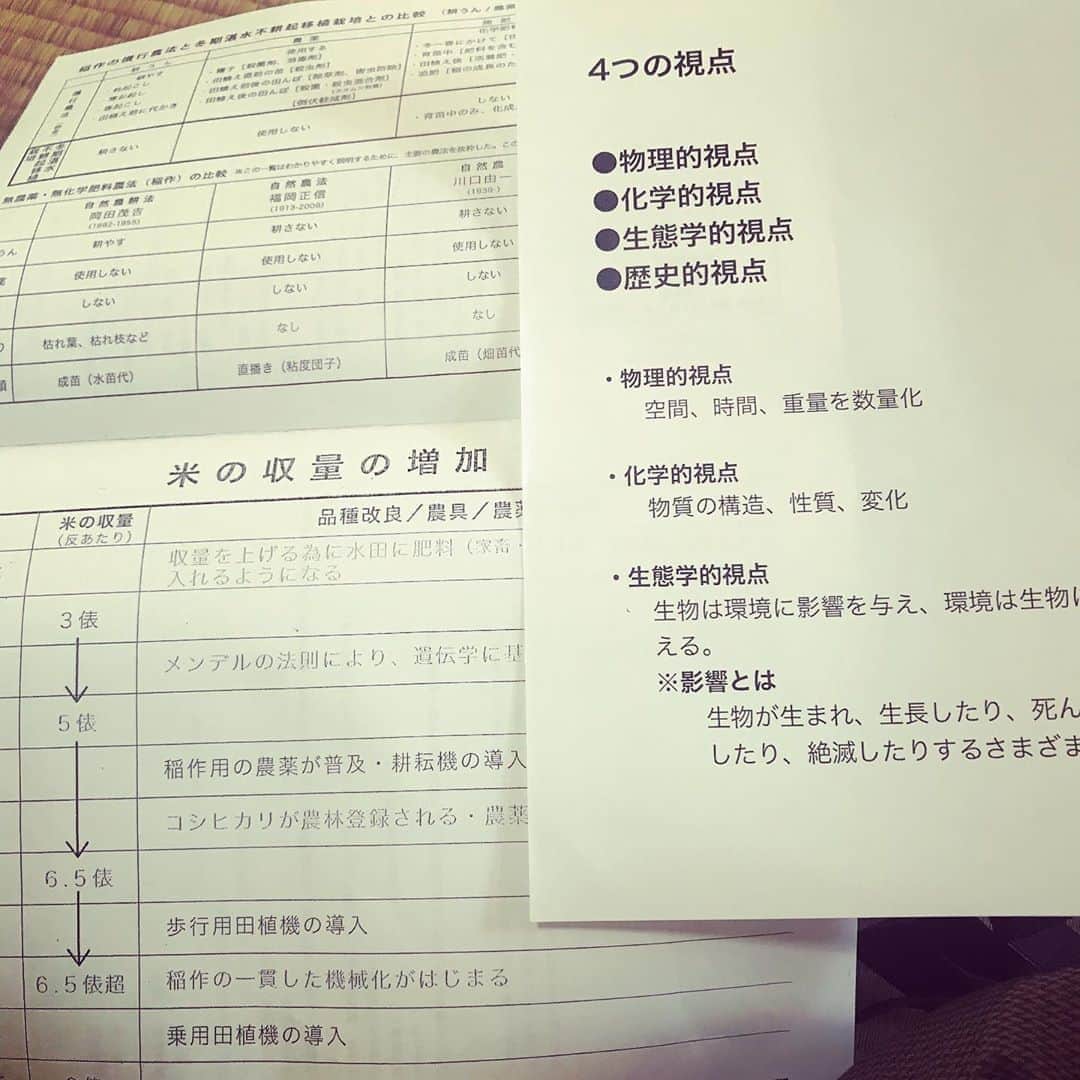 稲作の慣行農法と冬期湛水不耕起移植栽培との比較
農薬
使用する
・種子［殺菌剤、消毒剤］
・田植え直前の苗［殺虫剤］
・田植え前後の田んぼ［除草剤、害虫防除］
・田植え後の田んぼ［殺菌・殺虫混合剤］
［倒伏軽減剤］
・田植え前に代かき
耕さない
使用しない
しない
・育苗中のみ、化成
無農薬・無化学肥料農法（稲作）の比較
自然農耕法
岡田茂吉
(1882-1955)
自然農法
福岡正信
(1913-2008)
自然農
川口由一
(1939-)
耕やす
耕さない
耕さない
使用しない
使用しない
使用しない
しない
しない
しない
枯れ葉、枯れ枝など
なし
なし
成苗（水苗代）
直播き（粘度団子）
成苗（畑苗代
米の収量の増加
米の収量
（反あたり）
品種改良／農具／農薬
収量を上げる為に水田に肥料（家畜・
入れるようになる
3俵
メンデルの法則により、遺伝学に基
5俵
稲作用の農薬が普及・耕耘機の導入
コシヒカリが農林登録される・農薬
6.5俵
歩行用田植機の導入
6.5俵超
稲作の一貫した機械化がはじまる
乗用田植機の導入
4つの視点
●物理的視点
●化学的視点
●生態学的視点
●歴史的視点
・物理的視点
空間、時間、重量を数量化
・化学的視点
物質の構造、性質、変化
・生態学的視点
生物は環境に影響を与え、環境は生物に
える。
※影響とは
生物が生まれ、生長したり、死ん
したり、絶滅したりするさまざま